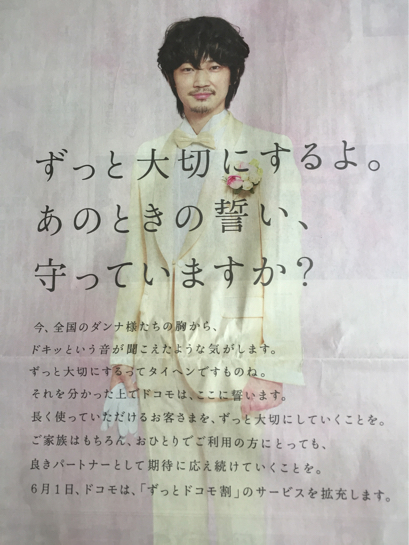 ずっと大切にするよ。
あのときの誓い、
守っていますか？
今、全国のダンナ様たちの胸から、
ドキッという音が聞こえたような気がします。
ずっと大切にするってタイヘンですものね。
それを分かった上でドコモは、ここに誓います。
長く使っていただけるお客さまを、ずっと大切にしていくことを。
ご家族はもちろん、おひとりでご利用の方にとっても、
良きパートナーとして期待に応え続けていくことを。
6月1日、ドコモは、「ずっとドコモ割」のサービスを拡充します。